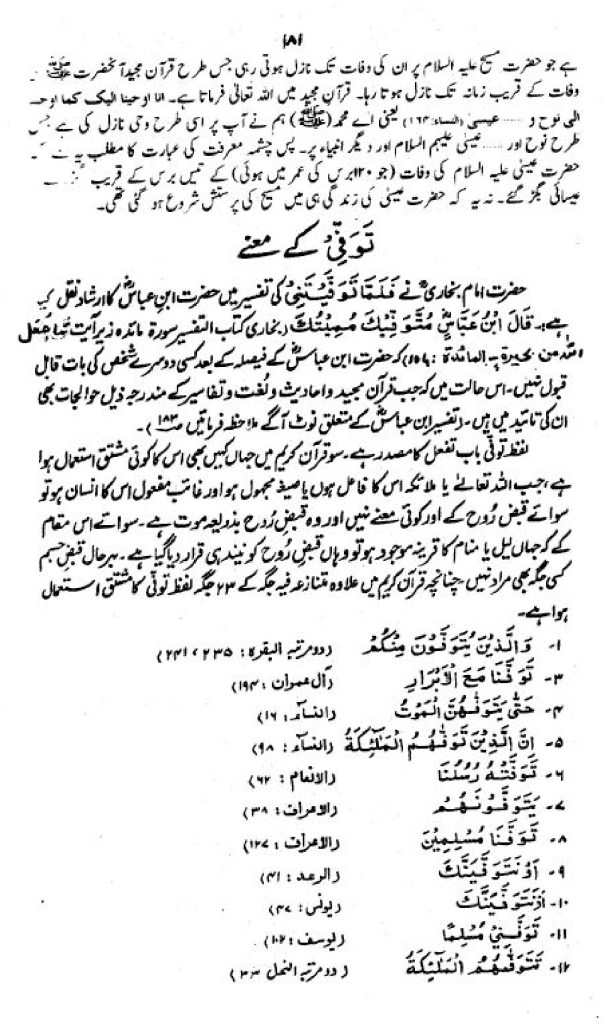 ۱۸۱
ہے جو حضرت مسیح علیہ السلام پر ان کی وفات تک نازل ہوتی رہی جس طرح قرآن مجید آنحضرت ﷺ
وفات کے قریب زمانہ تک نازل ہوتا رہا۔ قرآن مجید میں اللہ تعالیٰ فرماتا ہے۔ انا اوحینا الیک کما اوحیـ
الی نوح و ..... عیسیٰ (النساء: ۱۶۴) یعنی اے محمد (ﷺ) ہم نے آپ پر اسی طرح وحی نازل کی ہے جس
طرح نوح اور ..... عیسیٰ علیہم السلام اور دیگر انبیاء پر۔ پس چشمہ معرفت کی عبارت کا مطلب یہ
حضرت عیسیٰ علیہ السلام کی وفات (جو ۱۲۰ برس کی عمر میں ہوئی) کے تیس برس کے قریب
عیسائی بگڑ گئے۔ نہ یہ کہ حضرت عیسیٰ کی زندگی ہی میں مسیح کی پرستش شروع ہو گئی تھی۔
تَوَفِّی کے معنے
حضرت امام بخاریؒ نے فَلَمَّا تَوَفَّیْتَنِیْ کی تفسیر میں حضرت ابن عباسؓ کا ارشاد نقل کیـ
ہے:۔ قَالَ ابْنُ عَبَّاسٍؓ مُتَوَفِّیْکَ مُمِیْتُکَ (بخاری کتاب التفسیر سورة مائدہ زیر آیت ما جعل
اللہ من بحیرة ۔ المائدة: ۱۰۴) کہ حضرت ابن عباسؓ کے فیصلہ کے بعد کسی دوسرے شخص کی بات قابل
قبول نہیں۔ اس حالت میں کہ جب قرآن مجید و احادیث و لغت و تفاسیر کے مندرجہ ذیل حوالجات بھی
ان کی تائید میں ہیں۔ (تفسیر ابن عباسؓ کے متعلق نوٹ آگے ملاحظہ فرمائیں صـ ۱۸۳)۔
لفظ توفّی باب تفعّل کا مصدر ہے۔ سو قرآن کریم میں جہاں کہیں بھی اس کا کوئی مشتق استعمال ہوا
ہے، جب اللہ تعالےٰ یا ملائکہ اس کا فاعل ہوں یا صیغہ مجہول ہو اور غائب مفعول اس کا انسان ہو تو
سوائے قبض رُوح کے اور کوئی معنے نہیں اور وہ قبضِ رُوح بذریعہ موت ہے۔ سوائے اس مقام
کے کہ جہاں لیل یا منام کا قرینہ موجود ہو تو وہاں قبضِ رُوح کو نیند ہی قرار دیا گیا ہے۔ بہرحال قبضِ جسم
کسی جگہ بھی مراد نہیں، چنانچہ قرآن کریم میں علاوہ متنازعہ فیہ جگہ کے ۲۳ جگہ لفظ توفّی کا مشتق استعمال
ہوا ہے۔
۱۔ وَالَّذِیْنَ یُتَوَفَّوْنَ مِنْکُمْ (دو مرتبہ البقرة: ۲۳۵، ۲۴۱)
۳۔ تَوَفَّنَا مَعَ الْاَبْرَارِ (آل عمران: ۱۹۴)
۴۔ حَتّٰی یَتَوَفّٰهُنَّ الْمَوْتُ (النساء: ۱۶)
۵۔ اِنَّ الَّذِیْنَ تَوَفّٰهُمُ الْمَلٰٓئِکَةُ (النساء: ۹۸)
۶۔ تَوَفَّتْهُ رُسُلُنَا (الانعام: ۶۲)
۷۔ یَتَوَفَّوْنَهُمْ (الاعراف: ۳۸)
۸۔ تَوَفَّنَا مُسْلِمِیْنَ (الاعراف: ۱۲۷)
۹۔ اَوْ نَتَوَفَّیَنَّکَ (الرعد: ۴۱)
۱۰۔ اَوْ نَتَوَفَّیَنَّکَ (یونس: ۴۷)
۱۱۔ تَوَفَّنِیْ مُسْلِمًا (یوسف: ۱۰۲)
۱۲۔ تَتَوَفّٰهُمُ الْمَلٰٓئِکَةُ (دو مرتبہ النحل: ۳۳)